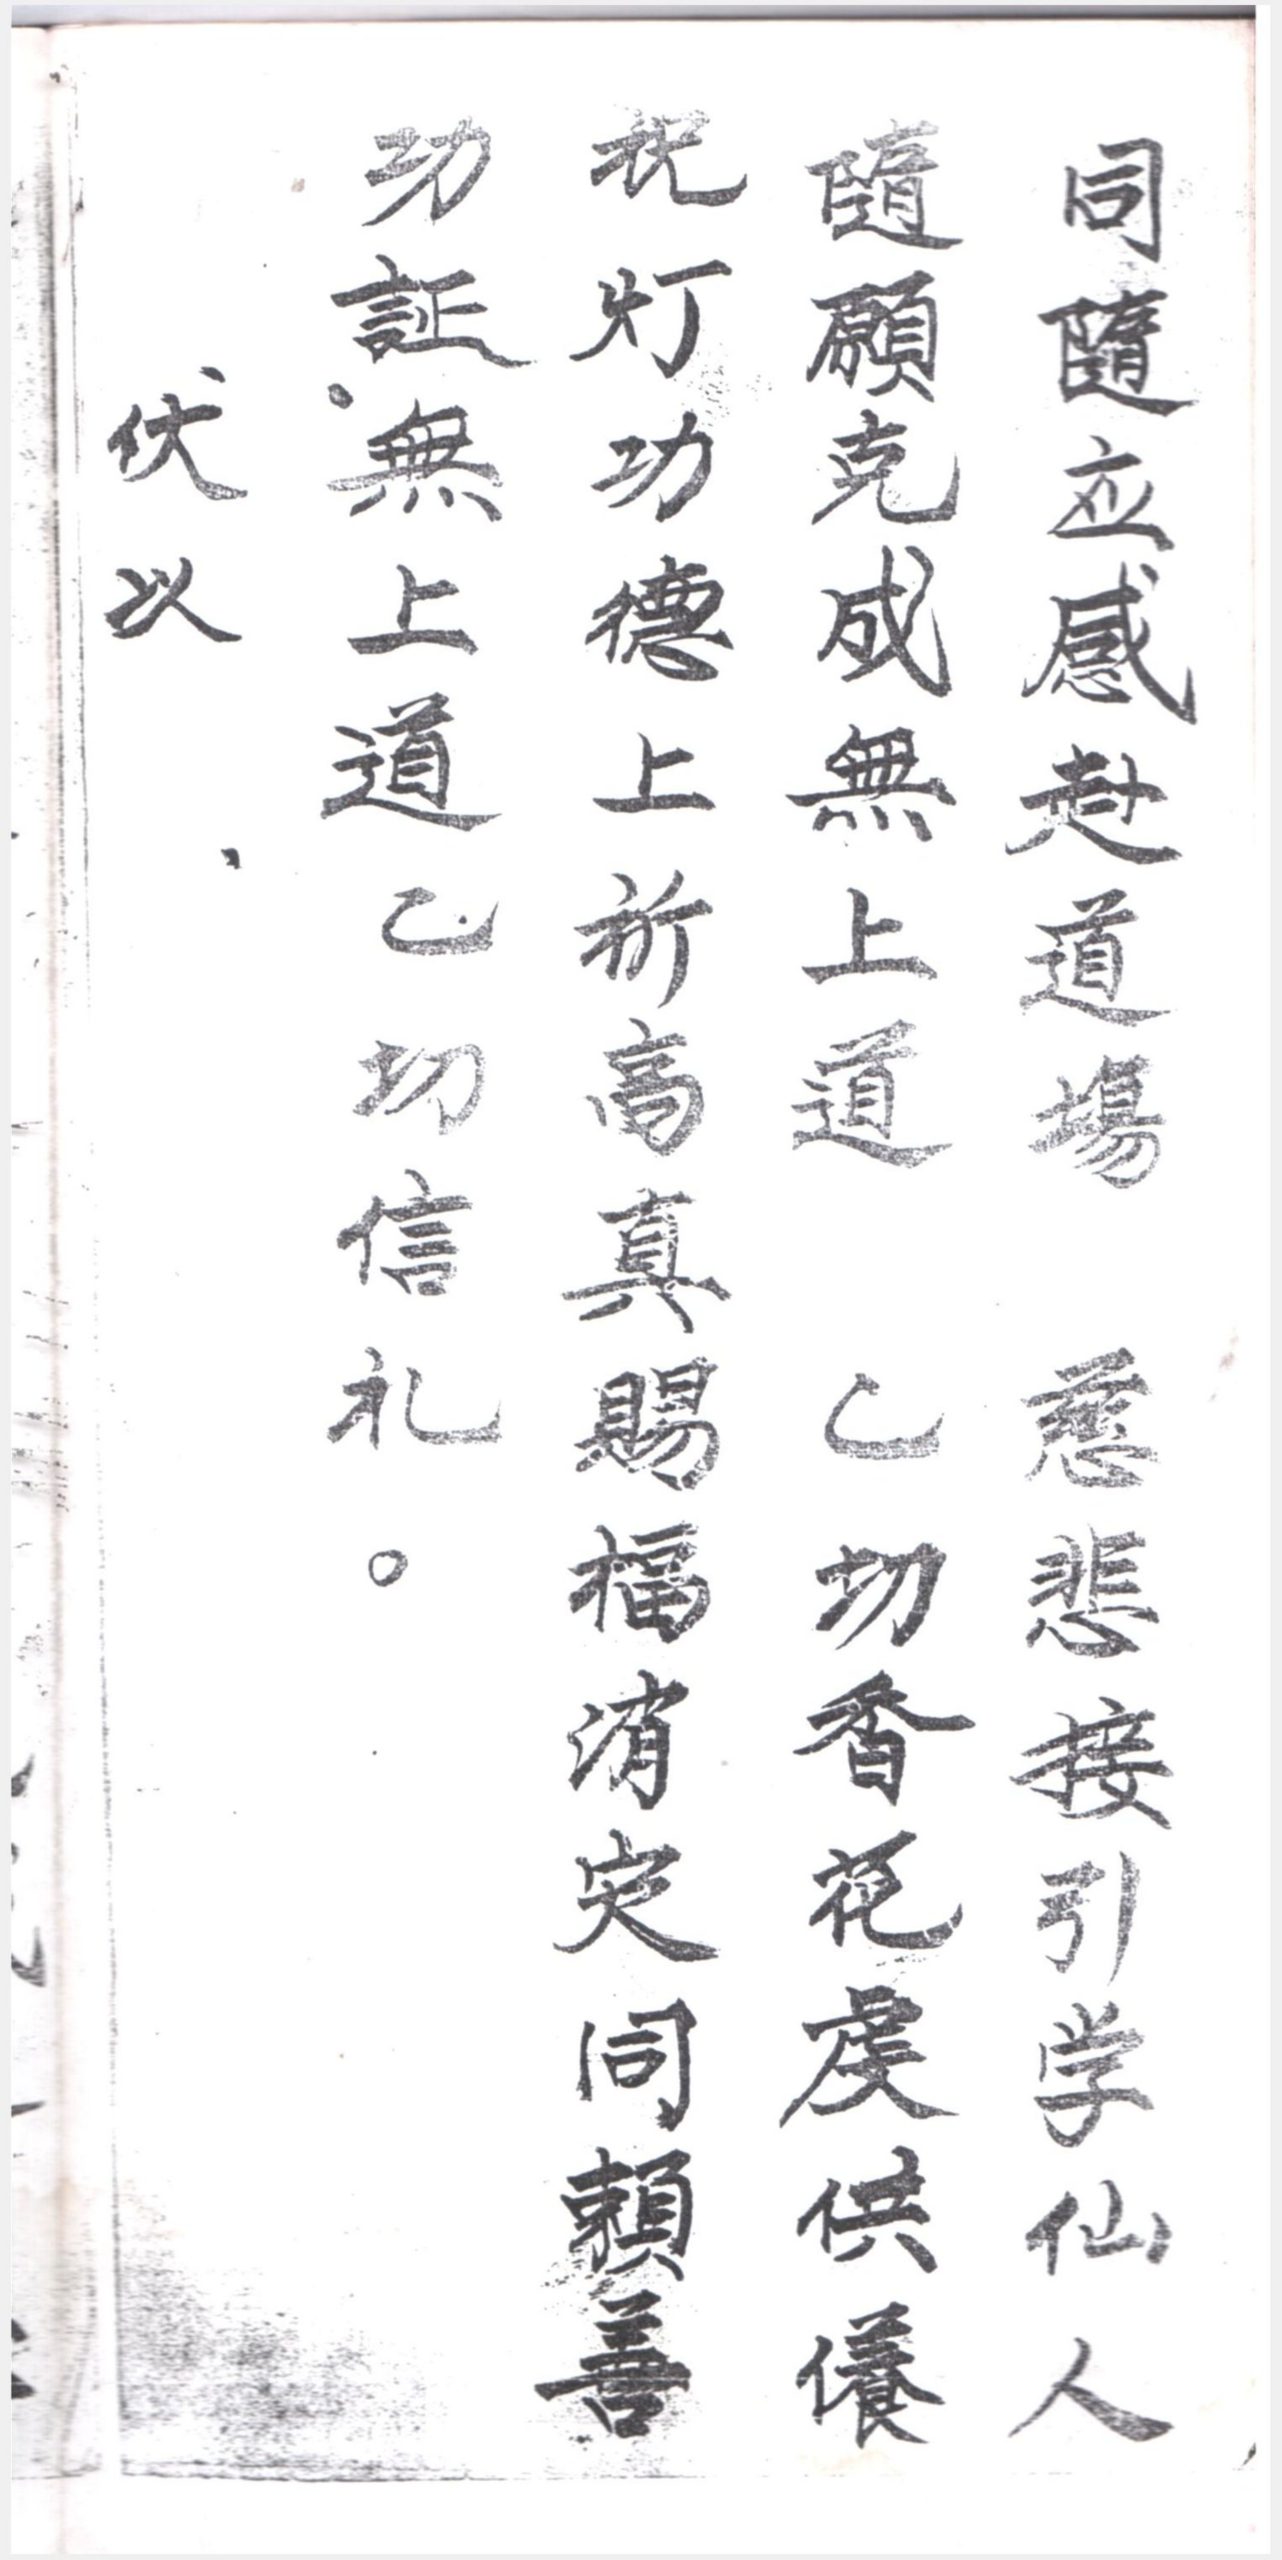 同隨应感赴道場　慈悲接引学仙人
隨願克成無上道　乙切香花虔供養
祝灯功德上祈高真賜福消灾同賴善
功証無上道乙切信礼。
伏以